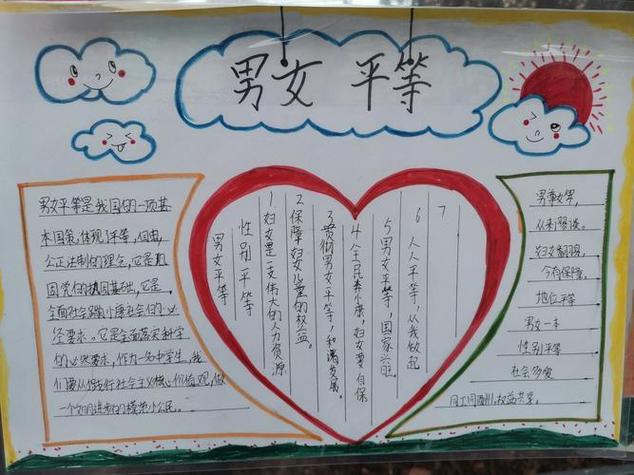 男女平等
男女平等是我国的一项基
本国策,体现了平等,自由,
公正法制的理念,它是
国党的执国基础,它是
全面社会
径要求。它是全面落实科学
的必要求,作为一名中学生,我
们要从做好社会主义核心价值观,做
一个文明进步的模范小公民。
男女平等
性别平等
1妇女是一支伟大的人力资源
2保障妇女儿童的权益。
3贯彻男女平等,和谐发展。
4全民奔小康,妇女要自保
5男女平等,国家兴旺
6人人平等,从我做起
7
男尊女卑,
从未解读。
妇女翻身,
今有保障。
地位平等
男女一本
性别平等
社会多爱
同工同酬,权益共享。